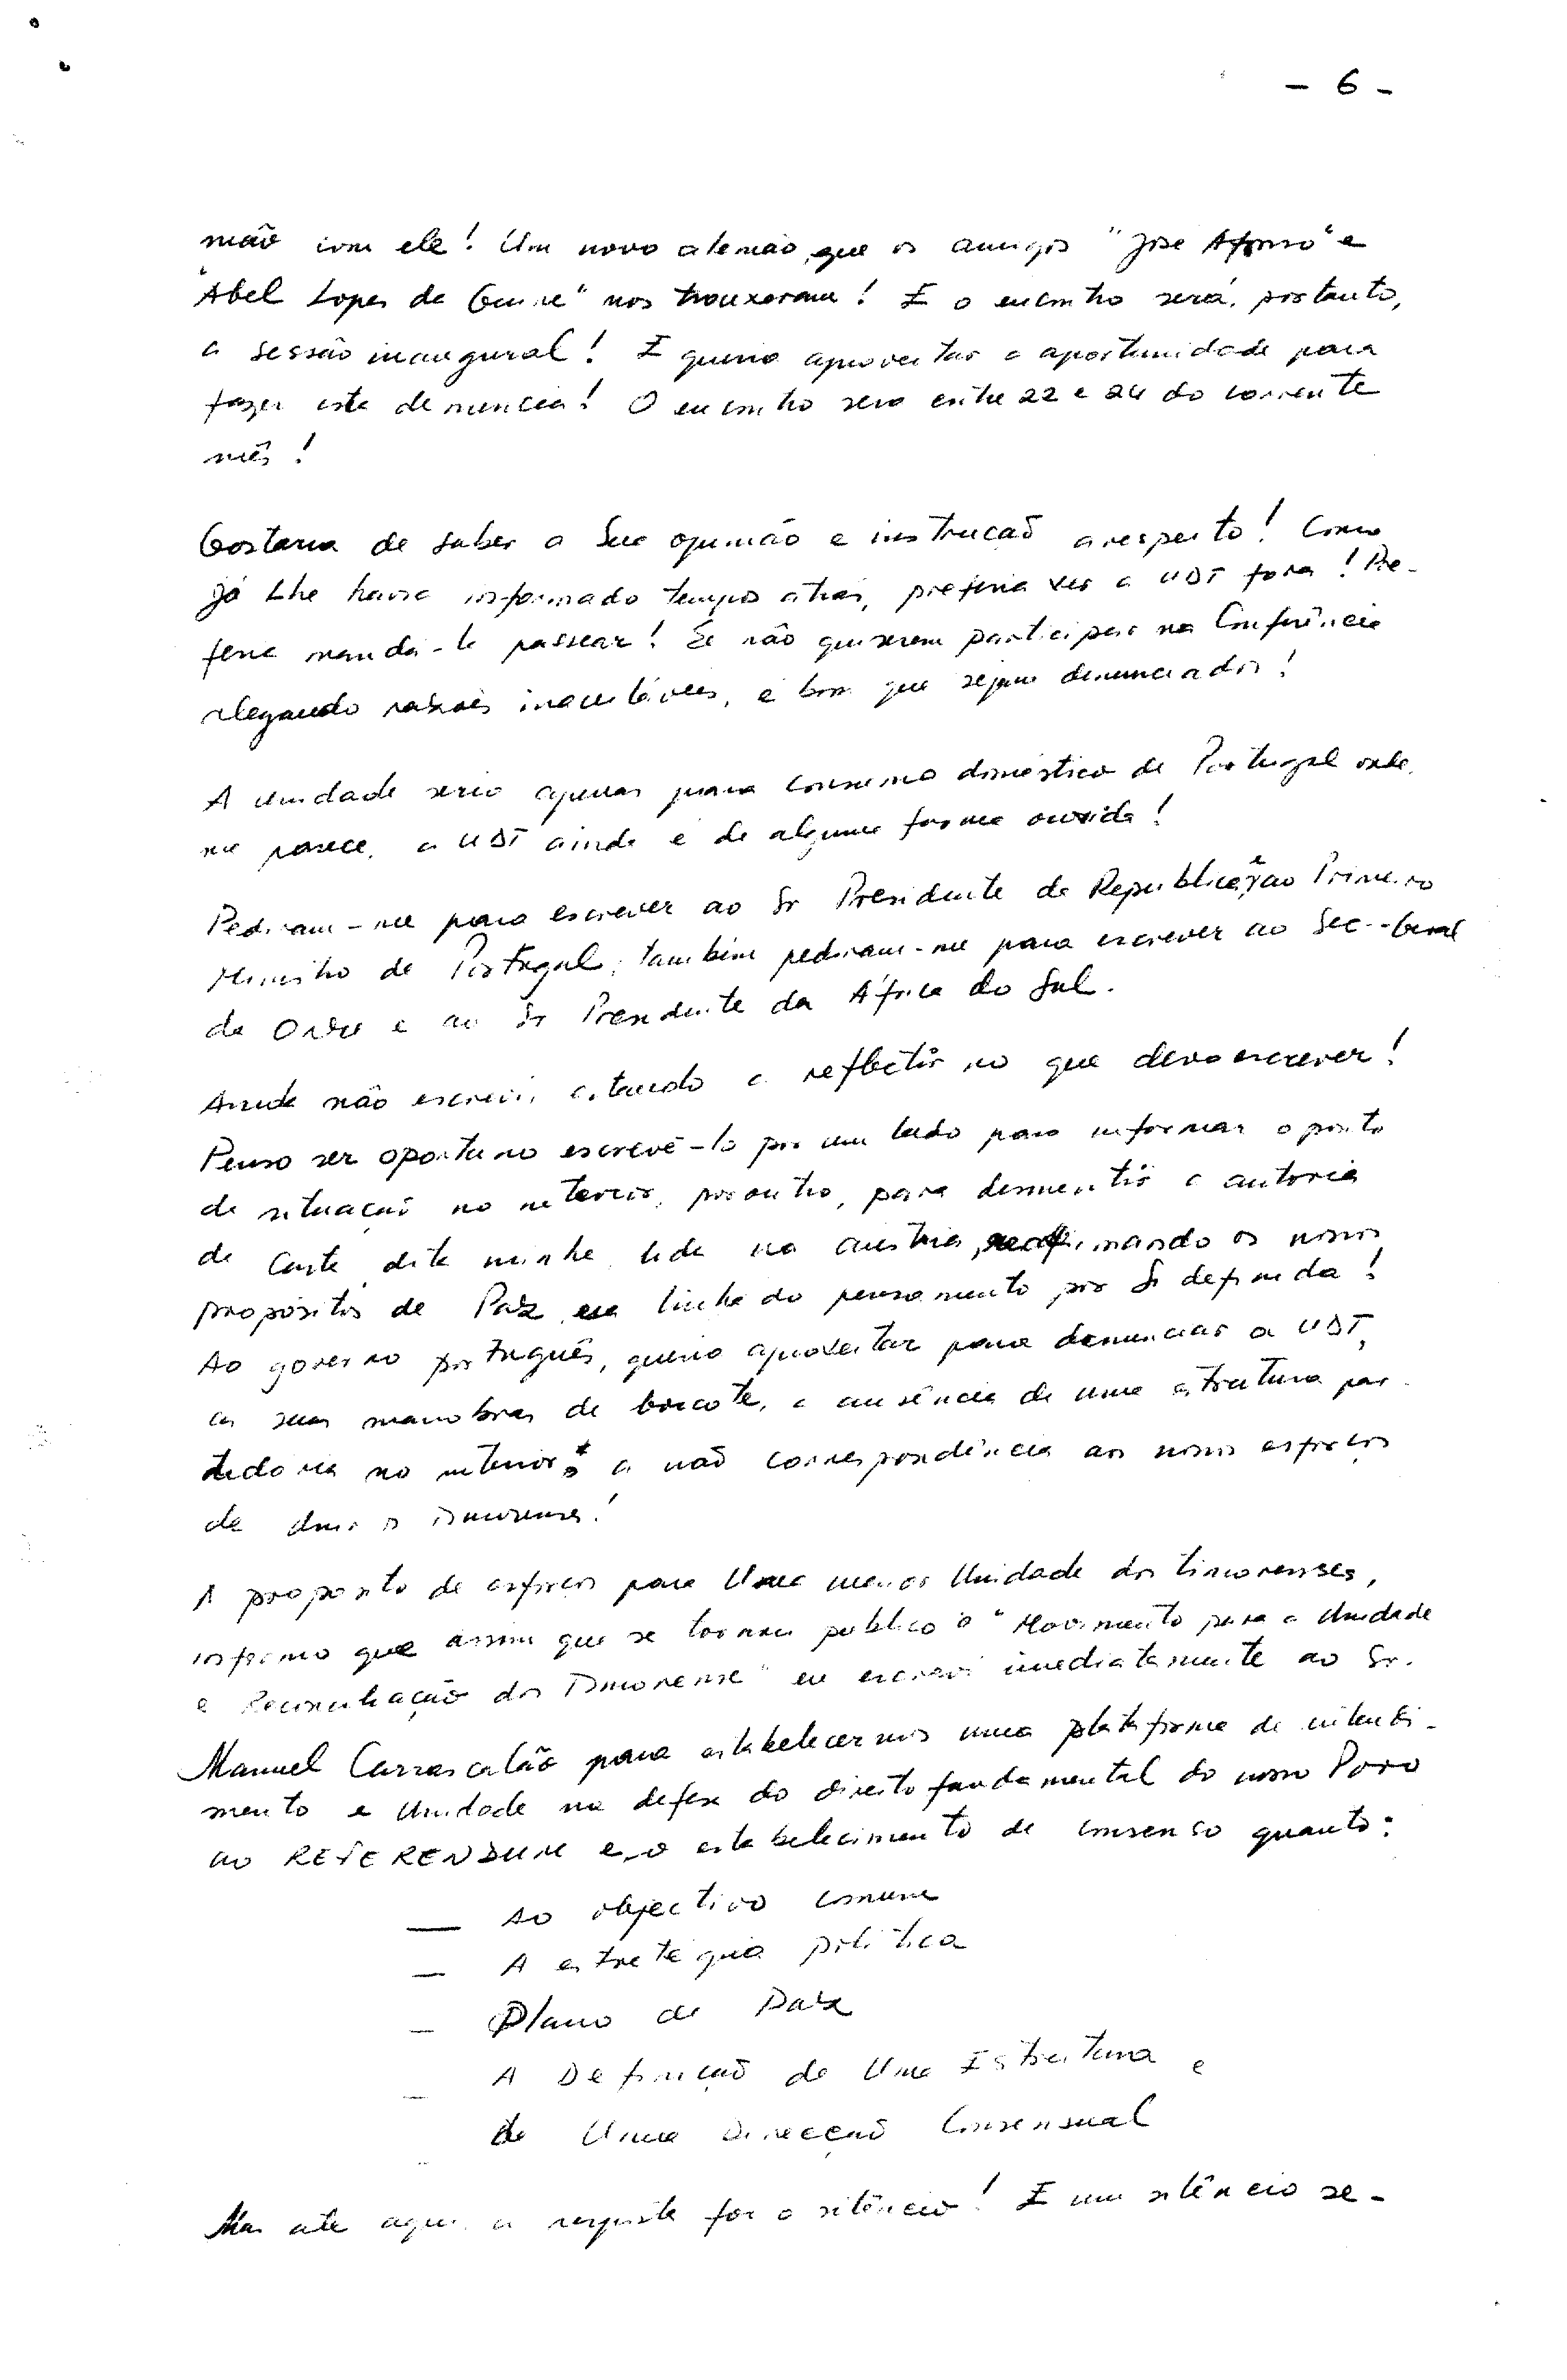 - 6 -
mão com ele! Um novo alemão, que os amigos "José Afonso" e
"Abel Lopes da Guine" nos trouxeram! E o encontro será, portanto,
a sessão inaugural! E queria aproveitar a oportunidade para
fazer esta denuncia! O encontro sera entre 22 e 24 do corrente
mês!
Gostaria de saber a Sua opinião e instrucaõ a respeito! Como
Já Lhe havia informado tempos atrás, preferia ver a UDT fora! Pre-
feria manda-la passear! Se não quiserem participar na Conferência
alegando razões inaceitáveis, é bom que sejam denunciados!
A unidade seria apenas para consumo doméstico de Portugal onde,
me parece, a UDT ainda e de alguma forma ouvida!
Pediram-me para escrever ao Sr Presidente da Republica, ao Primeiro
Ministro de Portugal; tambem pediram-me para escrever ao Sec.-Geral
da ONU e ao Sr Presidente da África do Sul.
Ainda não escrevi, estando a reflectir no que devo escrever!
Penso ser oportuno escrevê-lo por um lado para informar o ponto
de situaçaõ no interior, por outro, para desmentir a autoria
da Carta dita minha lida na austria, reafirmando os nossos
propositos de Paz na linha do pensamento por Si definida!
Ao governo português, queria aproveitar para denunciar a UDT,
as suas manobras de boicote, a ausência de uma estrutura par-
tidaria no interior, a naõ correspondência aos nossos esforços
de Unir os Timorenses!
A proposito de esforços para Uma maior Unidade dos timorenses,
informo que assim que se tornou publico o "Movimento para a Unidade
e Reconciliação dos Timorense" eu escrevi imediatamente ao Sr.
Manuel Carrascalão para estabelecermos uma plataforma de entendi-
mento e Unidade na defesa do direito fundamental do nosso Povo
ao REFERENDUM e, o estabelecimento de consenso quanto:
— Ao objectivo comum
— A estratégia politica
— Plano de Paz
— A Definiçaõ de Uma Estrutura e
de Uma Direcçaõ Consensual
Mas ate aqui, a resposta foi o silêncio! E um silêncio se-